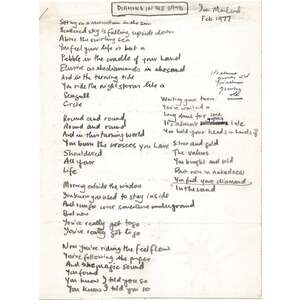 DIAMOND IN THE SAND
Feb 1977
Sitting on a mountain in the sun
sky is falling upside down
Above the swirling sea
You feel your life is but a
Pebble in the cradle of your hand
as diamonds in the sand
And in the turning tide
You ride the night storms like a
Seagull
Circle
Round and round
Round and round
And in this turning world
You burn the crosses you have
Shouldered
All your
Life
Morning outside the window
you used to stay inside
And underground
But now
You've really got to go
You've really got to go
Now you're riding the feel flow
You're following the
And the magic sound
You found
You know I told you so
You know I told you so
Waiting your turn
You've waited a
Long time for
life
You hold your heads in hands of
Silver and gold
The values
You bought and sold
now in nakedness
You find your diamond
In the sand